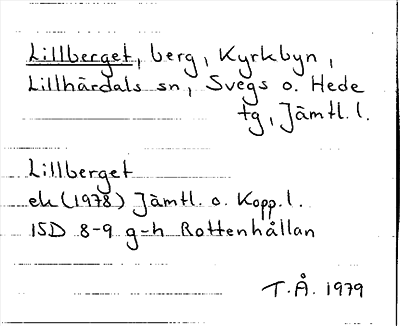 Lillberget, berg, Kyrkbyn,
Lillhärdals sn, Svegs o. Hede
tg, Jämtl. l.
Lillberget
ek (1978) Jämtl. o. Kopp. l.
15D 8-9 g-h Rottenhållan
T.Å. 1979